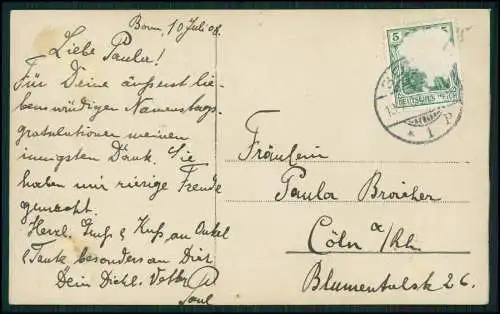 Bonn, 10 Juli 08.
Liebe Paula!
Für Deine äusserst lie-
benswürdigen Namenstags-
gratulationen meinen
innigsten Dank. Sie
haben mir riesige Freude
gemacht.
Herzl. Gruss & Kuss an Onkel
& Tante besonders an Dich
Dein Dichl. Vetter
Paul
5
DEUTSCHES REICH
* 1 P
Fräulein
Paula Broicher
Cöln a/Rh
Blumentalstr 26.